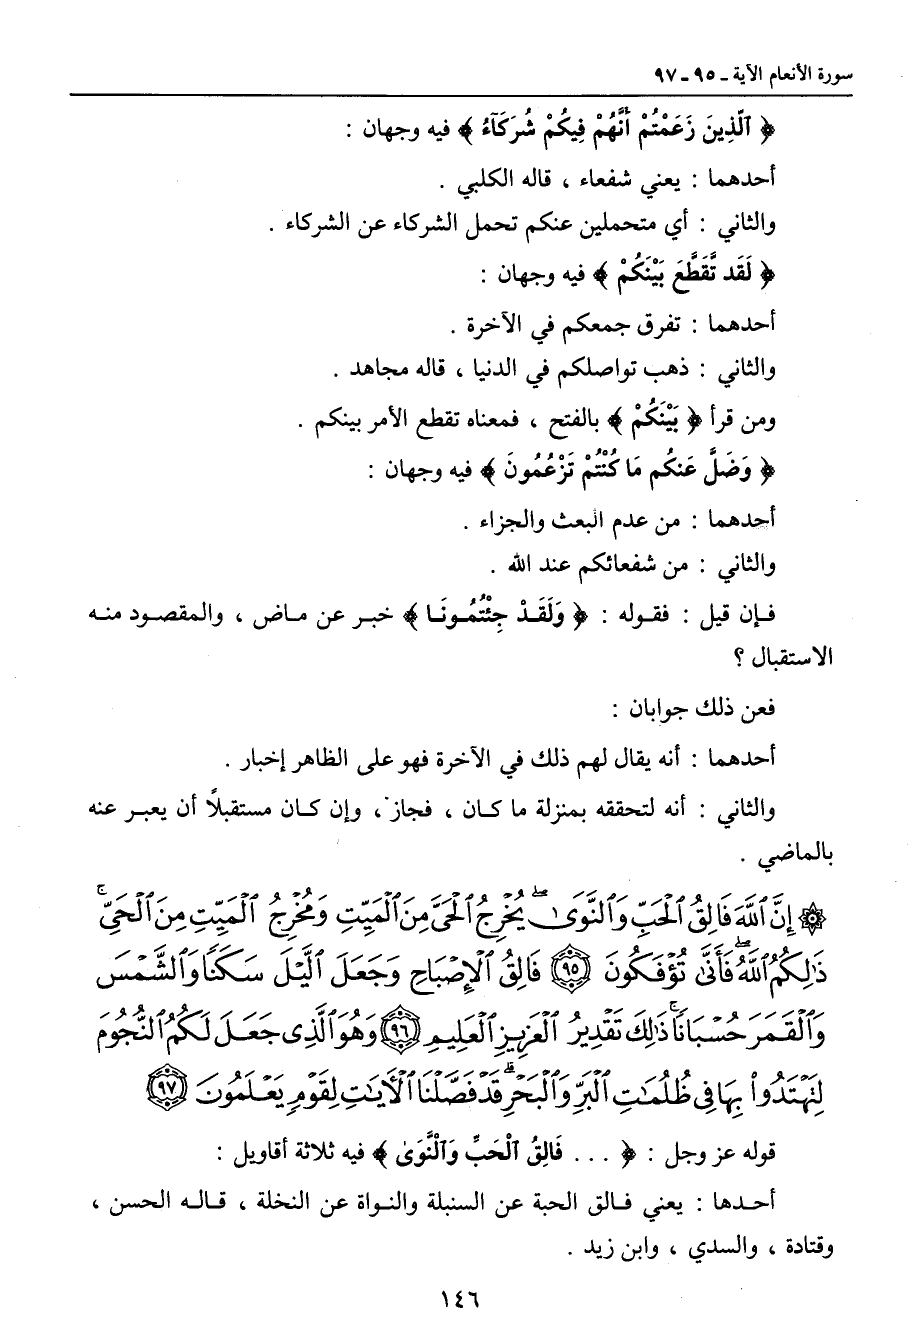 سورة الأنعام الآية ـ ٩٥ ـ ٩٧
﴿ ٱلَّذِينَ زَعَمْتُمْ أَنَّهُمْ فِيكُمْ شُرَكَآءُ ﴾ فيه وجهان :
أحدهما : يعني شفعاء ، قاله الكلبي .
والثاني : أي متحملين عنكم تحمل الشركاء عن الشركاء .
﴿ لَقَد تَّقَطَّعَ بَيْنَكُمْ ﴾ فيه وجهان :
أحدهما : تفرق جمعكم في الآخرة .
والثاني : ذهب تواصلكم في الدنيا ، قاله مجاهد .
ومن قرأ ﴿ بَيْنَكُمْ ﴾ بالفتح ، فمعناه تقطع الأمر بينكم .
﴿ وَضَلَّ عَنكُم مَا كُنْتُمْ تَزْعُمُونَ ﴾ فيه وجهان :
أحدهما : من عدم البعث والجزاء .
والثاني : من شفعائكم عند الله .
فإن قيل : فقوله : ﴿ وَلَقَدْ جِئْتُمُونَا ﴾ خبر عن ماض ، والمقصود منه
الاستقبال ؟
فعن ذلك جوابان :
أحدهما : أنه يقال لهم ذلك في الآخرة فهو على الظاهر إخبار .
والثاني : أنه لتحققه بمنزلة ما كان ، فجاز ، وإن كان مستقبلاً أن يعبر عنه
بالماضي .
۞ إِنَّ ٱللَّهَ فَالِقُ ٱلْحَبِّ وَٱلنَّوَىٰ ۖ يُخْرِجُ ٱلْحَىَّ مِنَ ٱلْمَيِّتِ وَمُخْرِجُ ٱلْمَيِّتِ مِنَ ٱلْحَىِّ ۚ
ذَٰلِكُمُ ٱللَّهُ ۖ فَأَنَّىٰ تُؤْفَكُونَ ﴿٩٥﴾ فَالِقُ ٱلْإِصْبَاحِ وَجَعَلَ ٱلَّيْلَ سَكَنًا وَٱلشَّمْسَ
وَٱلْقَمَرَ حُسْبَانًا ۚ ذَٰلِكَ تَقْدِيرُ ٱلْعَزِيزِ ٱلْعَلِيمِ ﴿٩٦﴾ وَهُوَ ٱلَّذِى جَعَلَ لَكُمُ ٱلنُّجُومَ
لِتَهْتَدُوا۟ بِهَا فِى ظُلُمَٰتِ ٱلْبَرِّ وَٱلْبَحْرِ ۗ قَدْ فَصَّلْنَا ٱلْأَيَٰتِ لِقَوْمٍ يَعْلَمُونَ ﴿٩٧﴾
قوله عز وجل : ﴿ . . . فَالِقُ ٱلْحَبِّ وَٱلنَّوَىٰ ﴾ فيه ثلاثة أقاويل :
أحدها : يعني فالق الحبة عن السنبلة والنواة عن النخلة ، قاله الحسن ،
وقتادة ، والسدي ، وابن زيد .
١٤٦